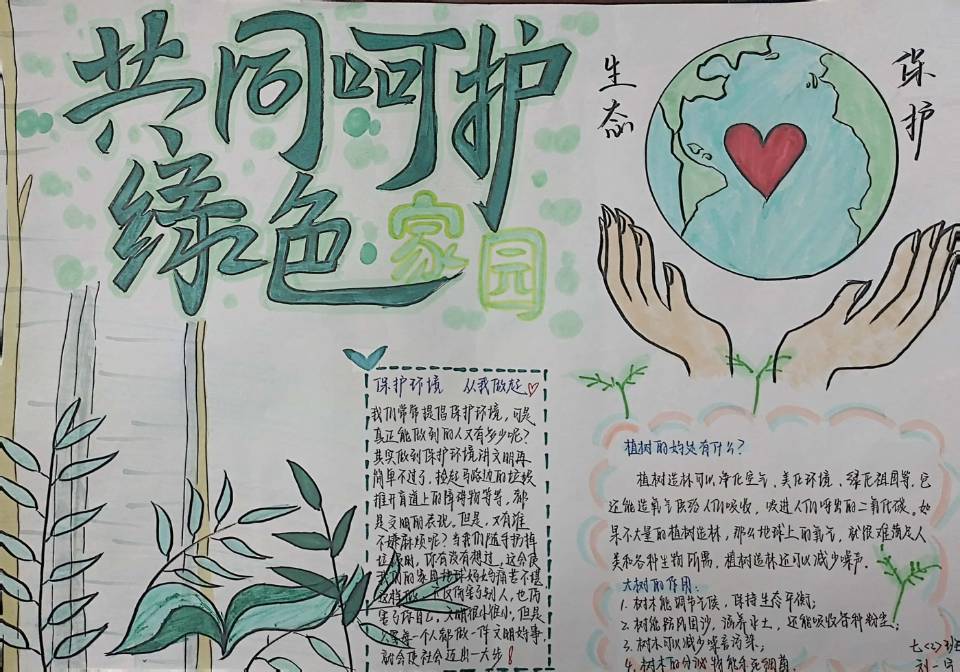 共同呵护
绿色家园
生态
保护
保护环境 从我做起
我们常常提倡保护环境，可是
真正能做到的人又有多少呢？
其实做到保护环境讲文明再
简单不过了，捡起马路边的垃圾
推开盲道上的障碍物等等，都
是文明的表现。但是，又有谁
不嫌麻烦呢？当我们随手扔掉
垃圾时，你有没有想过，这会使
我们的家园地球妈妈痛苦不堪
害了你自己，文明很小很小，但是
每一个人都做一件文明的事，
就会使社会迈出一大步！
植树的好处有什么？
植树造林可以净化空气，美化环境，绿化祖国等，它
还能造氧气供给人们吸收，吸进人们呼出的二氧化碳。如
果不大量的植树造林，那么地球上的氧气，就很难满足人
类和各种生物所需，植树造林还可以减少噪声。
大树的作用：
1. 树木能调节气候，保持生态平衡；
2. 树能防风固沙，涵养水土，还能吸收各种粉尘；
3. 树木可以减少噪音污染；
4. 树木的分泌物能杀死细菌
七(2)班